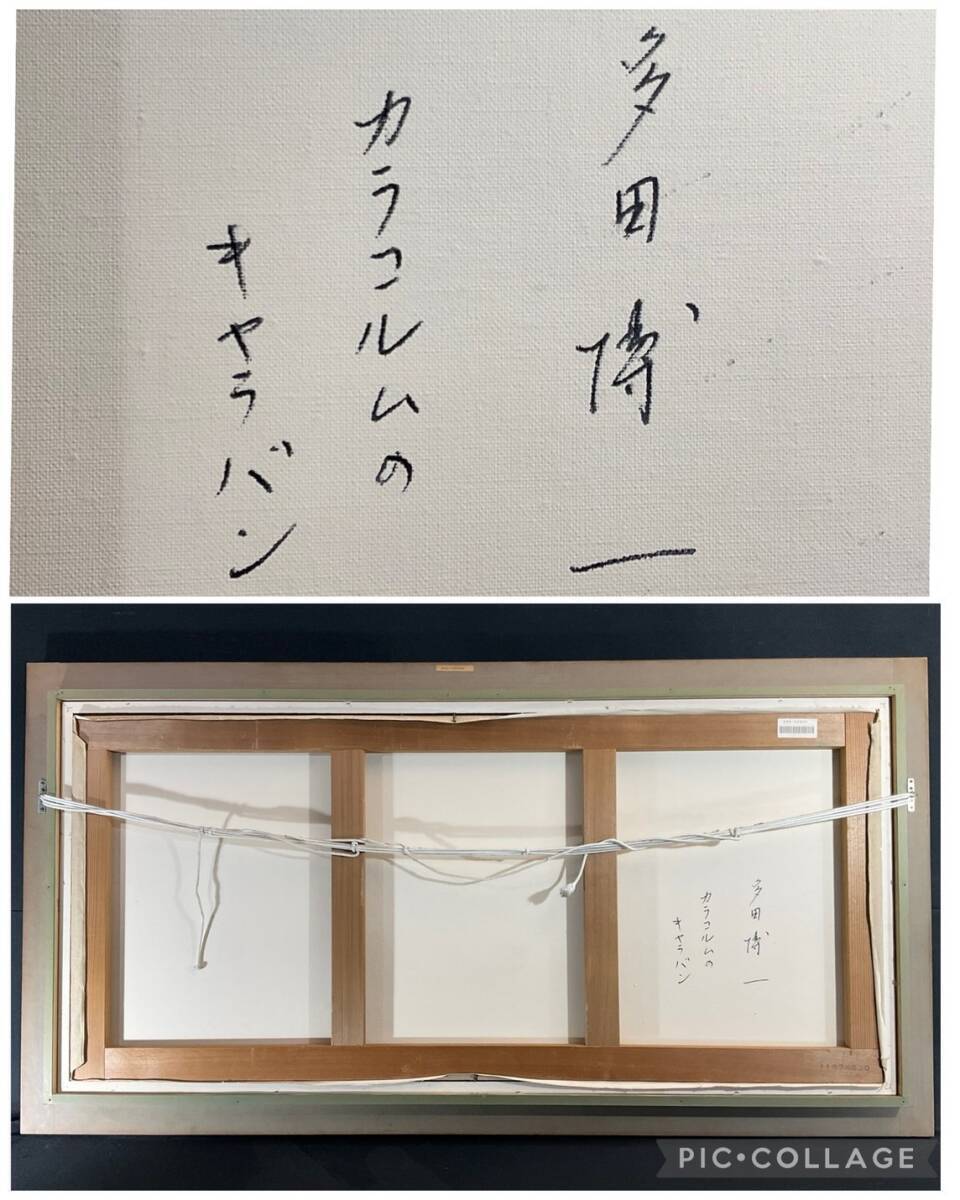 多田博一
カラコルムの
キャラバン
多田博一
カラコルムの
キャラバン
PIC•COLLAGE